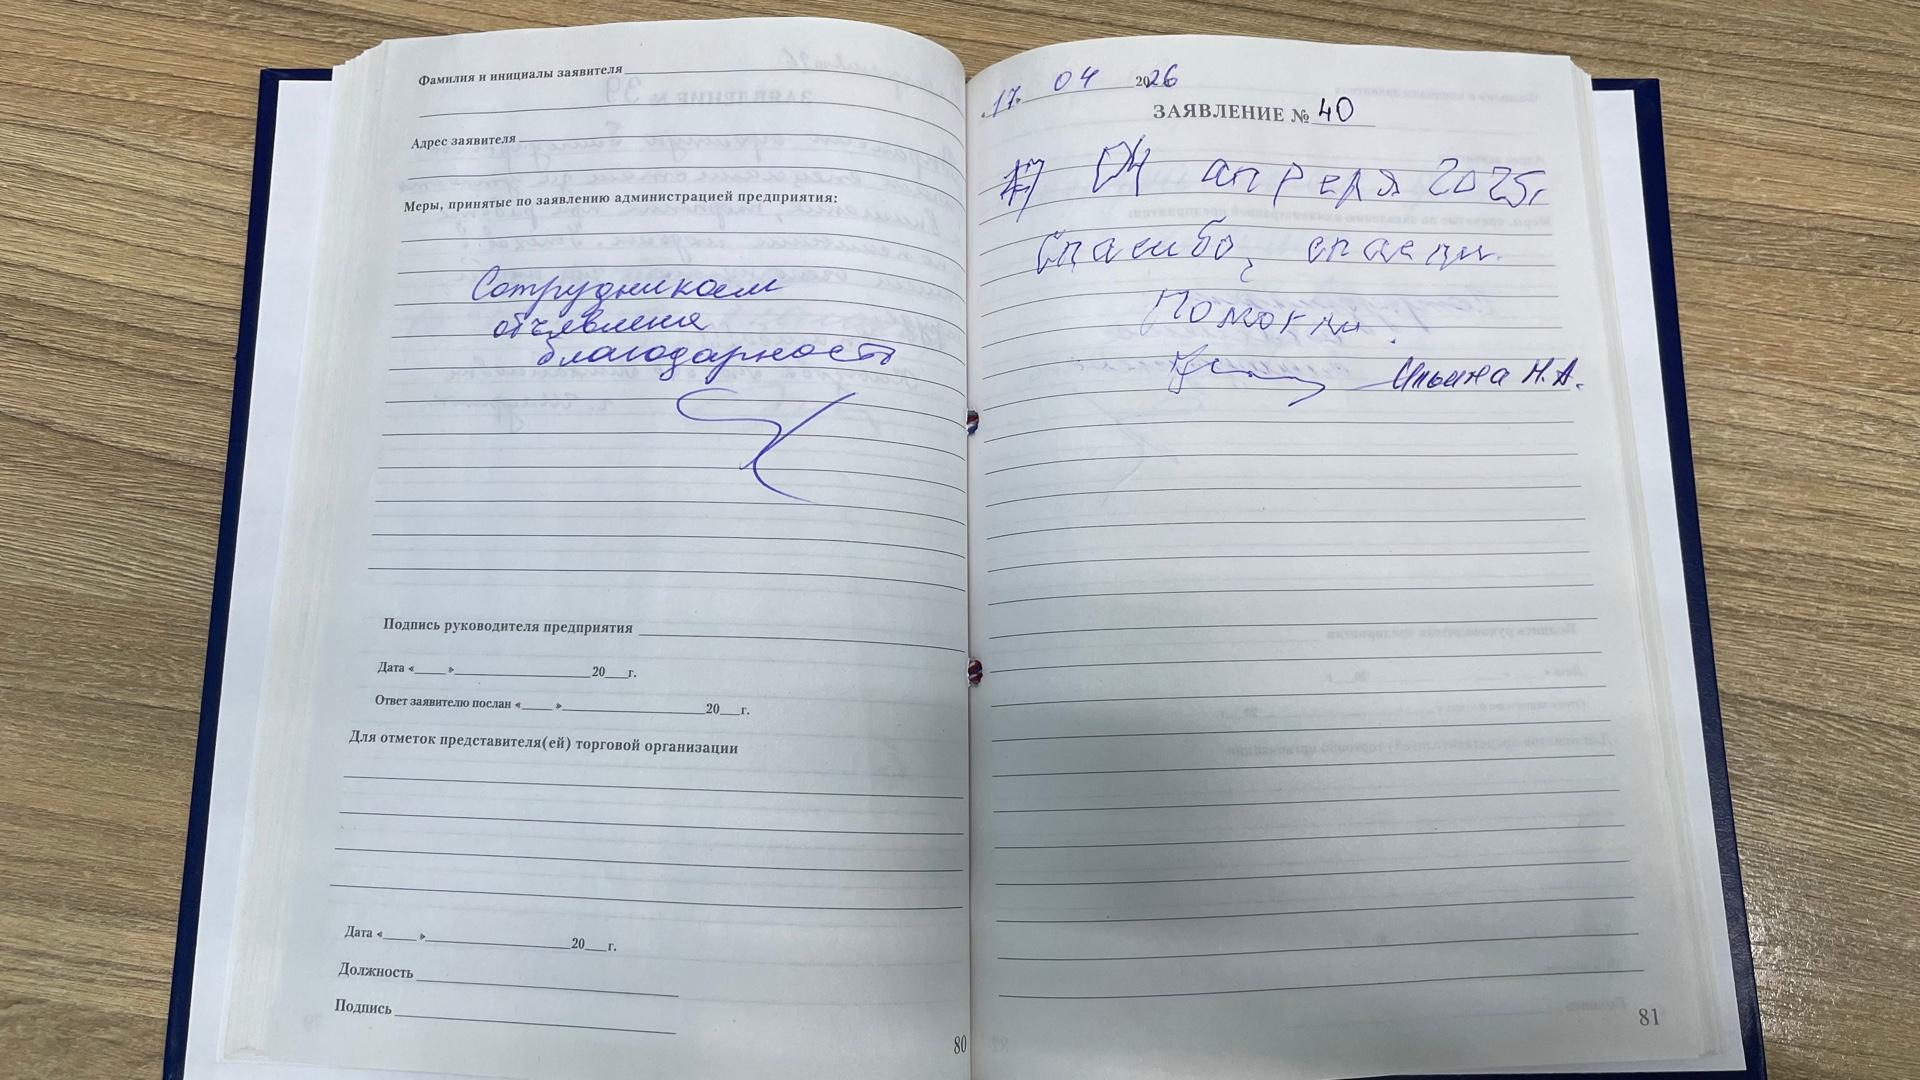 Фамилия и инициалы заявителя
Адрес заявителя
Меры, принятые по заявлению администрацией предприятия:
Сотрудникам
объявлена
благодарность
Подпись руководителя предприятия
Дата «____» ____ 20__г.
Ответ заявителю послан «____» ____ 20__г.
Для отметок представителя(ей) торговой организации
Дата «____» ____ 20__г.
Должность
Подпись
80
17. 04 2026
ЗАЯВЛЕНИЕ № 40
17 04 апреля 2025г
Спасибо, спасли.
Помогли.
Ильина Н.А.
81